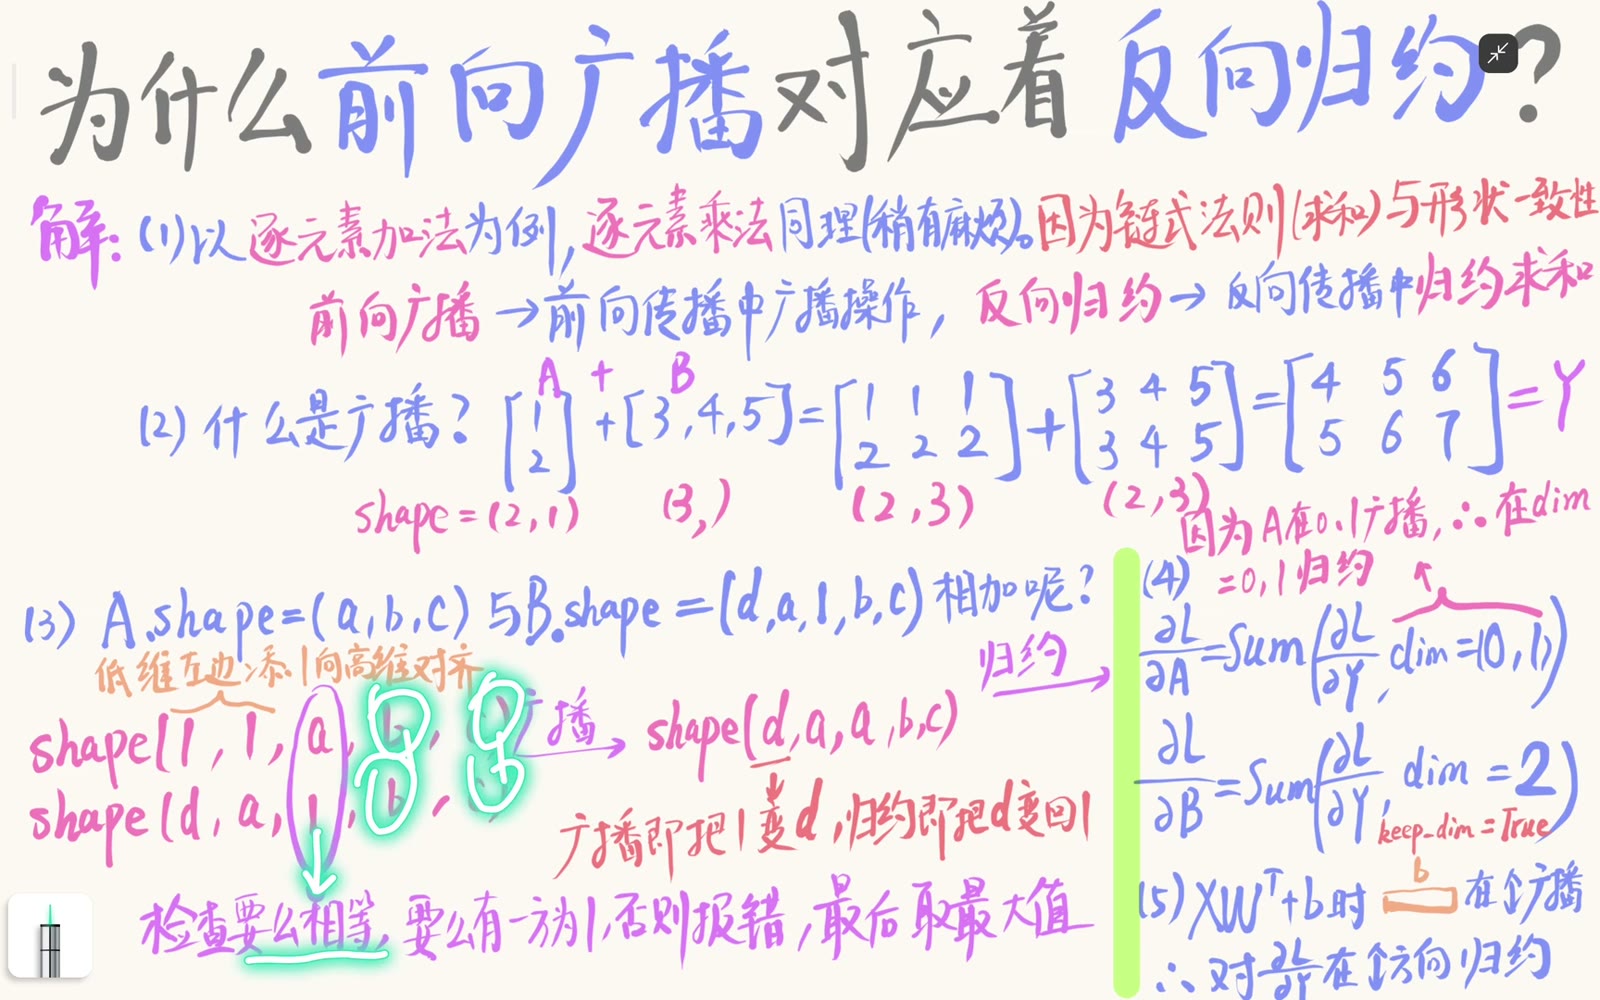 为什么前向广播对应着反向归约?
解: (1)以逐元素加法为例,逐元素乘法同理(稍有麻烦)。因为链式法则(求和)与形状一致性
前向广播→前向传播中广播操作, 反向归约→反向传播中归约求和
A + B
(2) 什么是广播? [1 2] + [3,4,5] = [1 1 1 2 2 2] + [3 4 5 3 4 5] = [4 5 6 5 6 7] = Y
shape=(2,1) (3,) (2,3) (2,3)
(3) A.shape=(a,b,c) 与B.shape=(d,a,1,b,c)相加呢?
低维左边添1向高维对齐
shape(1,1,a,b, 广播→ shape(d,a,a,b,c) 归约→
shape(d,a,1,b,
广播即把1变d,归约即把d变回1
检查要么相等,要么有一方为1,否则报错,最后取最大值
因为A在0、1广播,∴在dim
(4) =0,1归约
∂L/∂A=Sum(∂L/∂Y, dim=(0,1))
∂L/∂B=Sum(∂L/∂Y, dim=2)
keep-dim=True
b
(5) XWᵀ+b时 在↕广播
∴对∂L/∂Y在↕方向归约